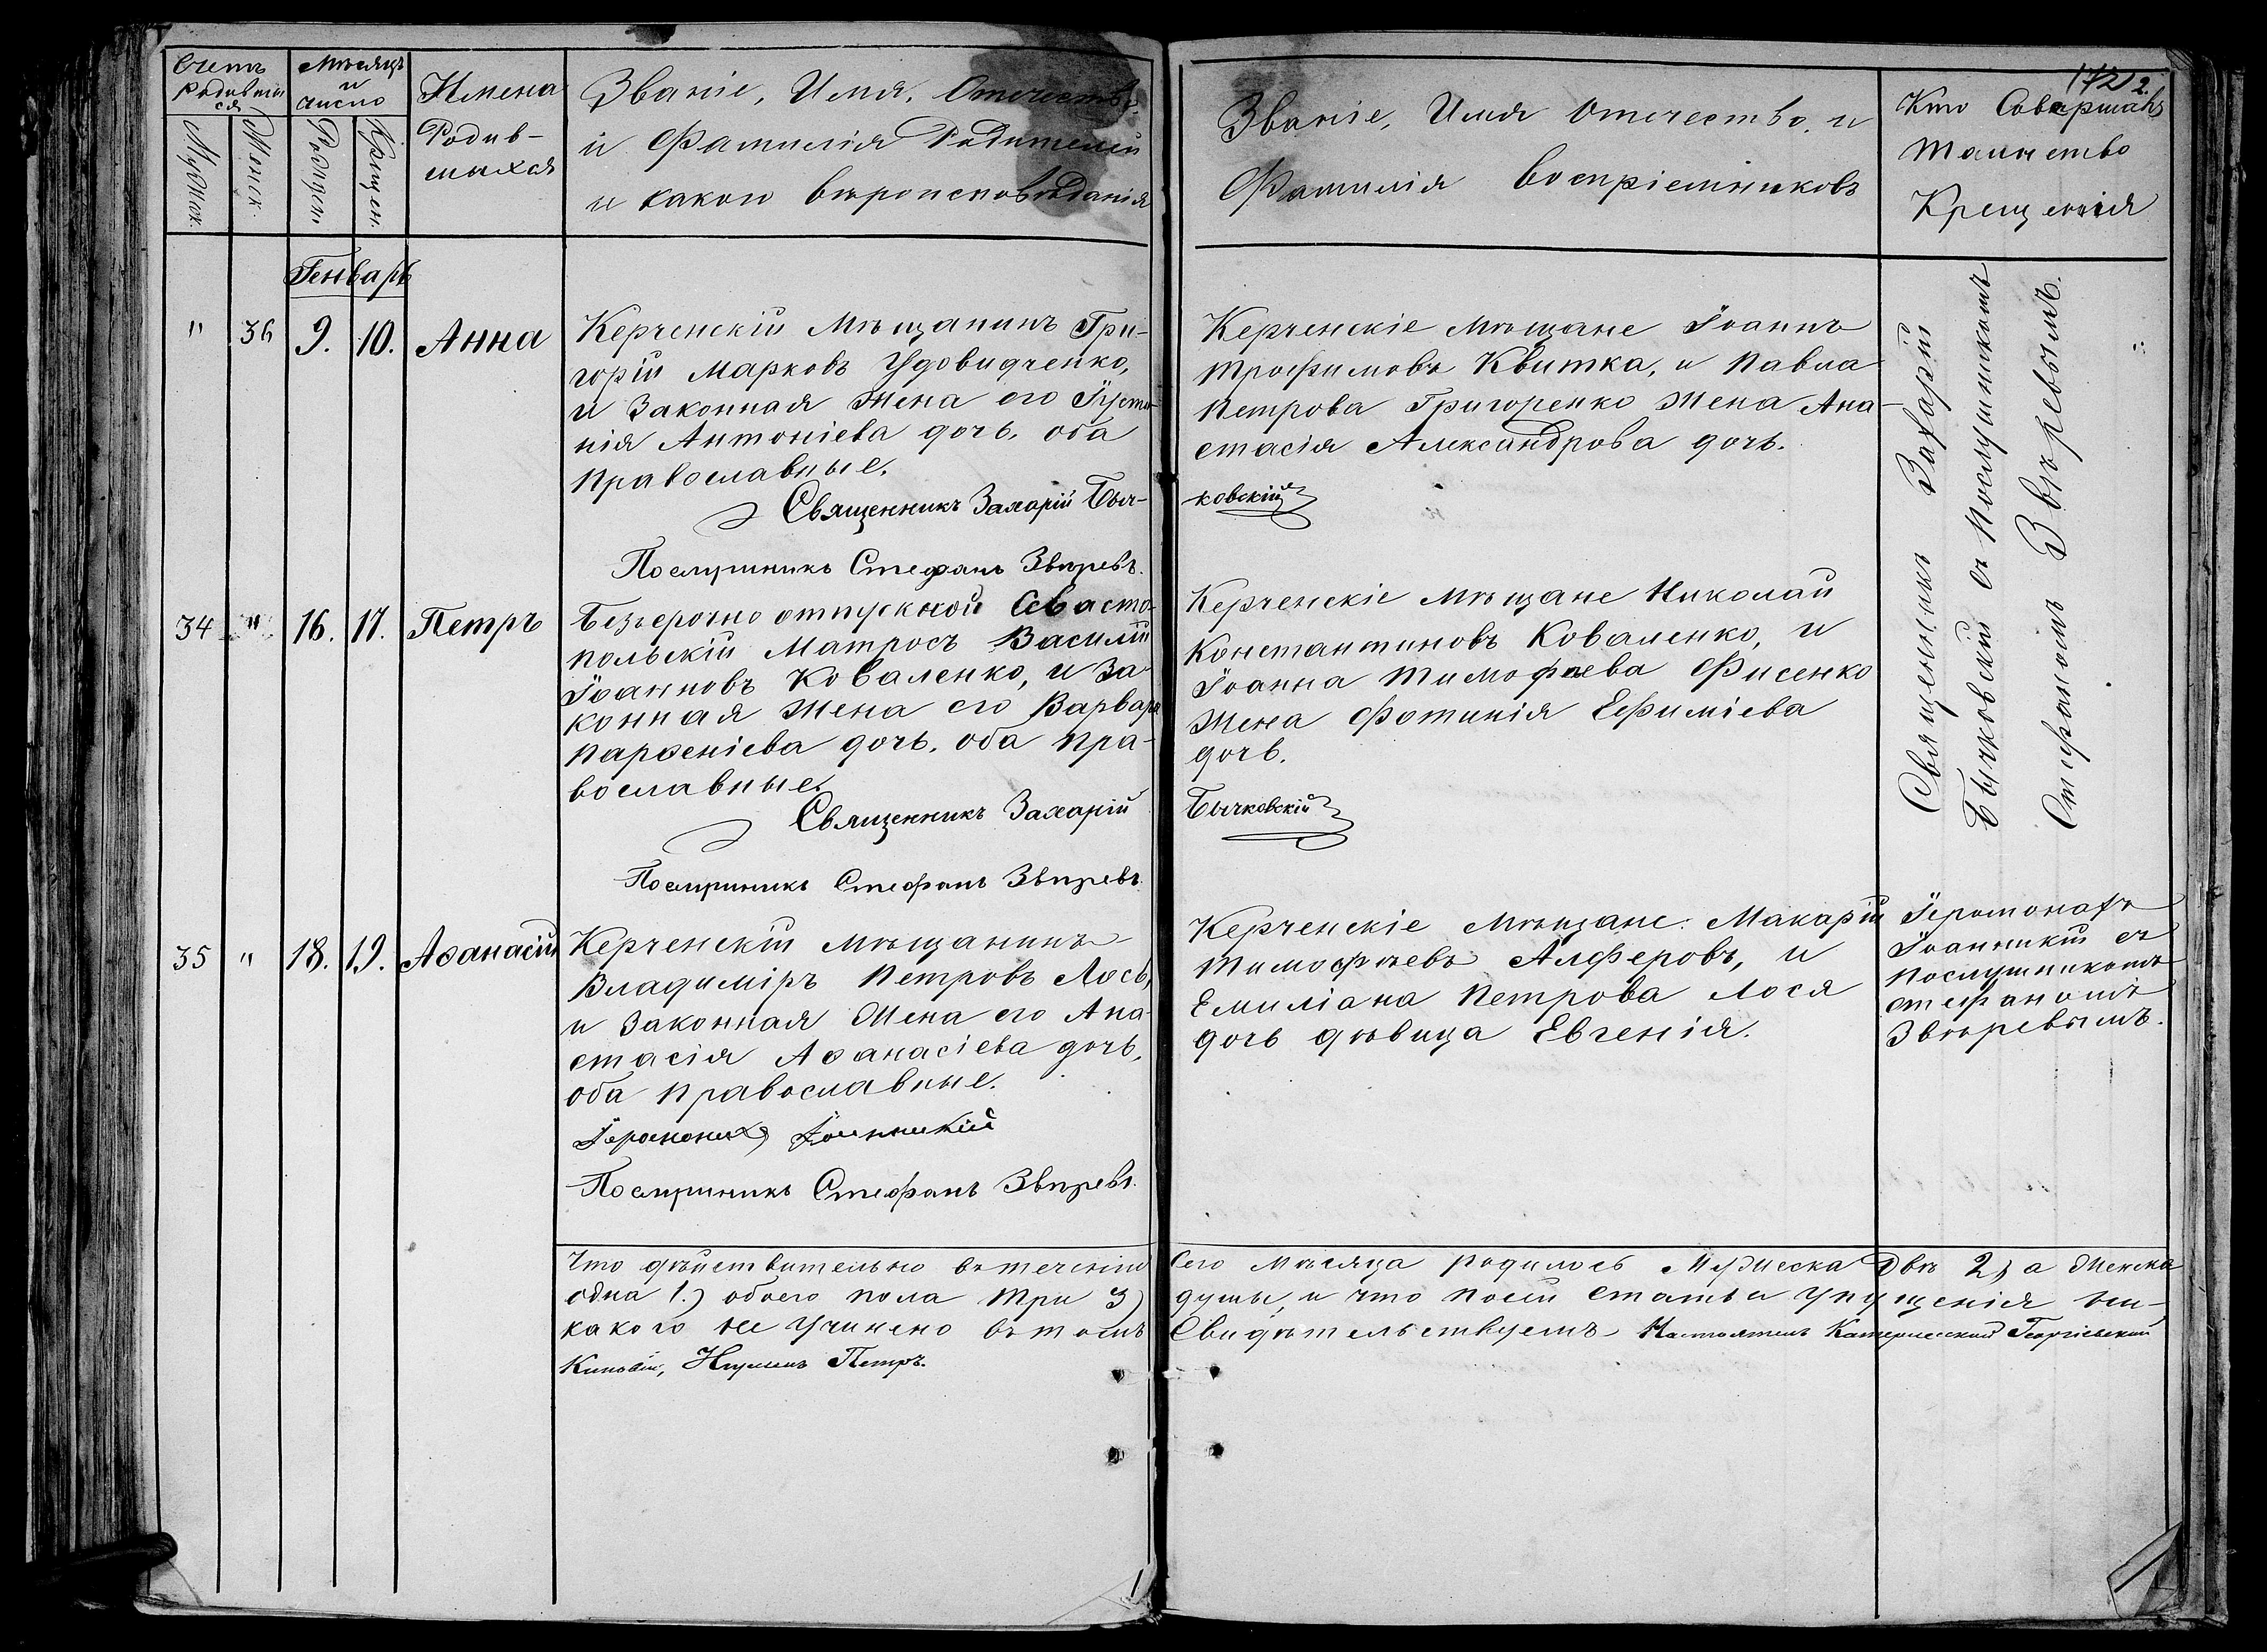 Счетъ
Родивших
ся
Мужеск.
Женск.
Мѣсяцъ
и
число
Рожден.
Крещен.
Имена
Родив-
шихся
Званіе, Имя, Отечество
и Фамилія Родителей
и какого вѣроисповѣданія
Званіе, Имя Отечество, и
Фамилія Воспріемниковъ
172 2.
Кто Совершалъ
Таинство
Крещенія
Генварь
" 36 9. 10. Анна
Керченскій Мѣщанинъ Гри-
горій Марковъ Удовидченко,
и Законная Жена его Іусти-
нія Антоніева дочь. оба
православные.
Священникъ Захарій Быч-
Послушникъ Стефанъ Звѣревъ.
Керченскіе Мѣщане Іоаннъ
Трофимовъ Квитка, и Павла
Петрова Григоренко Жена Ана-
стасія Александрова дочь.
ковскій
Священникъ Захарій
Бычковскій съ Послушникомъ
Стефаномъ Звѣревымъ.
34 " 16. 17. Петръ
Безсрочно отпускной Севасто-
польскій Матросъ Василій
Іоанновъ Коваленко, и За-
конная Жена его Варвара
Парѳеніева дочь. оба пра-
вославные.
Священникъ Захарій
Послушникъ Стефанъ Звѣревъ.
Керченскіе Мѣщане Николай
Константиновъ Коваленко, и
Іоанна Тимофѣева Фисенко
Жена Фотинія Ефиміева
дочь.
Бычковскій
35 " 18. 19. Аѳанасій
Керченскій Мѣщанинъ
Владиміръ Петровъ Лось,
и Законная Жена его Ана-
стасія Аѳанасіева дочь,
оба православные.
Іеромонахъ Іоанникій
Послушникъ Стефанъ Звѣревъ.
Керченскіе Мѣщане: Макарій
Тимофѣевъ Алферовъ, и
Емиліана Петрова Лося
дочь дѣвица Евгенія.
Іеромонахъ
Іоанникій съ
послушникомъ
Стефаномъ
Звѣревымъ.
Что дѣйствительно въ теченіи Сего Мѣсяца родилось Мужеска Двѣ 2) а Женска
одна 1.) обоего пола три 3) душы, и что по сей Статьи упущенія ни-
какого не учинено въ томъ Свидѣтельствуемъ Настоятель Катерлесской Георгіевской
Киновіи, Игуменъ Петръ.